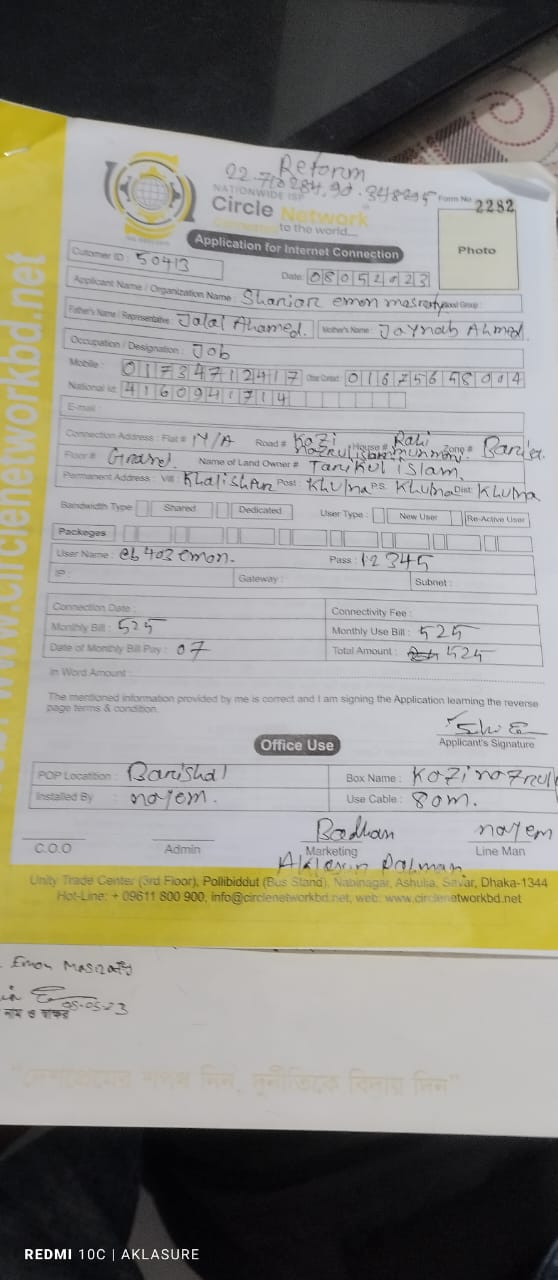 Reform
22.7
NATIONWIDE ISP
Form No. 2282
Circle Network
Connected to the world....
Application for Internet Connection
Photo
Customer ID : 50413
Date: 08052023
Applicant Name / Organization Name : Shariar emon masraty Blood Group :
Father's Name / Representative : Jalal Ahamed. Mother's Name : Jaynab Ahmed.
Occupation / Designation : Job
Mobile : 01734712417 Other Contact : 01675658004
National Id: 4160941714
E-mail :
Connection Address : Flat # N/A Road # Kazi Nazrul Islam House # Rahi Zone #
Floor # Name of Land Owner # Tarikul islam.
Permanent Address : Vill : Khalishpur Post : Khulna P.S. Khulna Dist: Khulna
Bandwidth Type Shared Dedicated User Type : New User Re-Active User
Packeges
User Name : eb403emon. Pass : 12345
IP : Gateway : Subnet :
Connection Date : Connectivity Fee :
Monthly Bill : 525 Monthly Use Bill : 525
Date of Monthly Bill Pay : 07 Total Amount : 525
In Word Amount :
The mentioned information provided by me is correct and I am signing the Application learning the reverse
page terms & condition.
Applicant's Signature
Office Use
POP Locatition : Barishal Box Name : Kazi nazrul
Installed By : nayem. Use Cable : 80m.
Badhan nayem
C.O.O Admin Marketing Line Man
Unity Trade Center (3rd Floor), Pollibiddut (Bus Stand), Nabinagar, Ashulia, Savar, Dhaka-1344
Hot-Line: + 09611 800 900, info@circlenetworkbd.net, web: www.circlenetworkbd.net
www.circlenetworkbd.net
Emon Masraty
08-05-23
নাম ও স্বাক্ষর
"দেশপ্রেমের শপথ নিন, দুর্নীতিকে বিদায় দিন"
REDMI 10C | AKLASURE